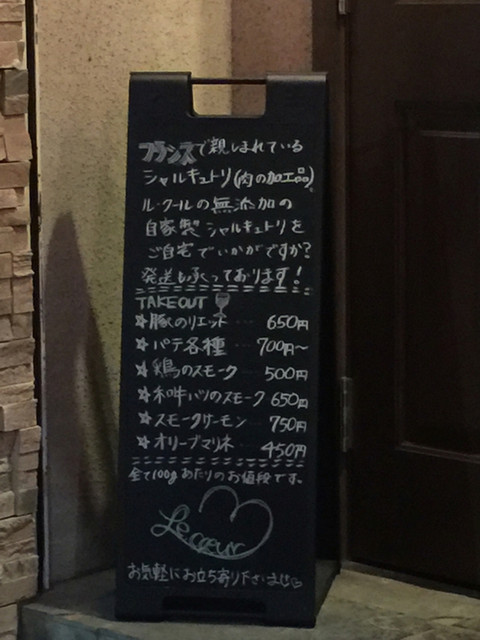 フランスで親しまれている
シャルキュトリ(肉の加工品)。
ル・クールの無添加の
自家製 シャルキュトリを
ご自宅でいかがですか?
発送も承っております!
TAKEOUT
☆豚のリエット … 650円
☆パテ各種 700円〜
☆鶏のスモーク 500円
☆和牛ハツのスモーク 650円
☆スモークサーモン 750円
☆オリーブマリネ 450円
全て100gあたりのお値段です。
Le cœur
お気軽にお立ち寄り下さいませ♡